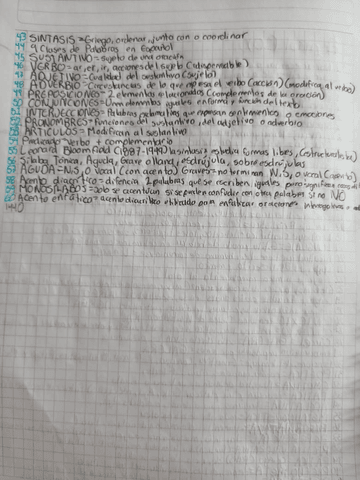 SINTASIS = Griego, ordenar, junto con o coordinar
9 Clases de Palabras en Español
SUSTANTIVO = sujeto de una oración
VERBO = ar, er, ir, acciones del sujeto (Indispensable)
ADJETIVO = Cualidad del sustantivo (sujeto)
ADVERBO = Circustancias de lo que expresa el verbo (acción) (modifica al verbo)
PREPOSICIONES = 2 elementos relacionados (complementos de la oración)
CONJUNCIONES = Unen elementos iguales en forma y función del texto
INTERJECCIONES = Palabras que representan sentimientos o emociones
PRONOMBRES = funciones del sustantivo, del adjetivo o adverbio
ARTICULOS = Modifican al sustantivo
Predicado = Verbo + complementario
Leonard Bloomfield (1887-1949) la sintaxis estudia formas libres,
Silaba Tónica, Aguda, Grave o llana, esdrújula, sobresdrújulas
AGUDA = N, S, o Vocal (con acento) Graves = no terminan N, S, o vocal
Acento diacrítico = difencia 2 palabras que se escriben iguales pero
MONOSILABOS = solo se acentúan si se pueden confudir con otra palabra si no NO
Acento enfático = acento diacrítico utilizado para enfatizar oraciones